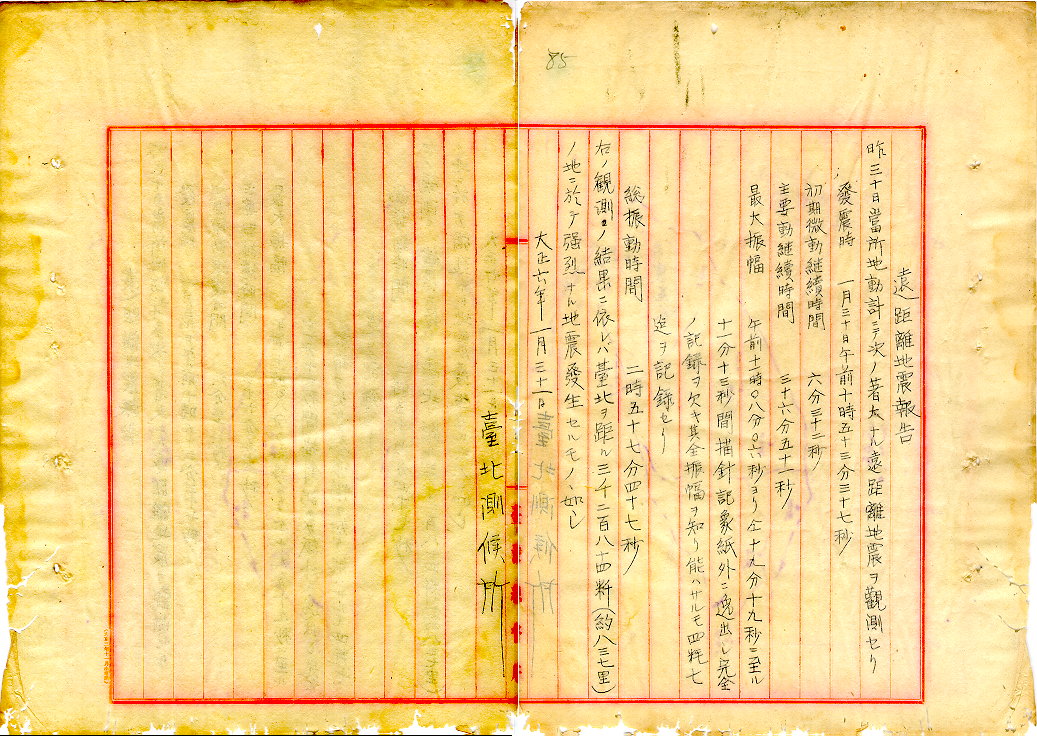 85
遠距離地震報告
昨三十日當所地動計ニテ次ノ著大ナル遠距離地震ヲ觀測セリ
發震時 一月三十日午前十時五十三分三十七秒
初期微動継續時間 六分三十二秒
主要動継續時間 三十六分五十一秒
最大振幅 午前十一時〇八分〇六秒ヨリ仝十九分十九秒ニ至ル
十一分十三秒間描針記象紙外ニ逸出シ完全
ノ記録ヲ欠キ其全振幅ヲ知リ能ハサルモ四粍七
迄ヲ記録セリ
総振動時間 二時五十七分四十七秒
右ノ觀測ノ結果ニ依レバ臺北ヲ距ル三千二百八十四粁(約八三七里)
ノ地ニ於テ强烈ナル地震發生セルモノヽ如シ
大正六年一月三十一日
臺北測候所